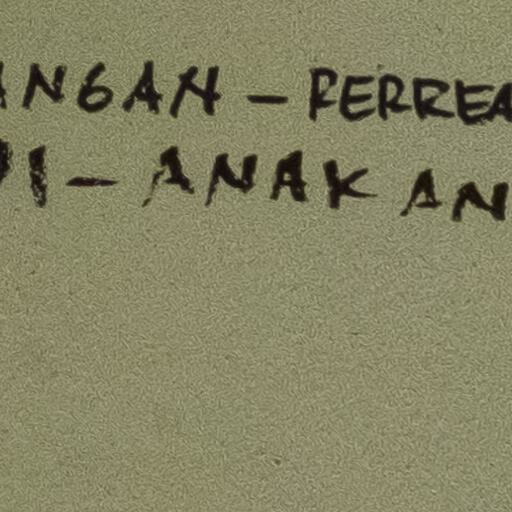 ANGAN - RERREA
PI - ANAK AN